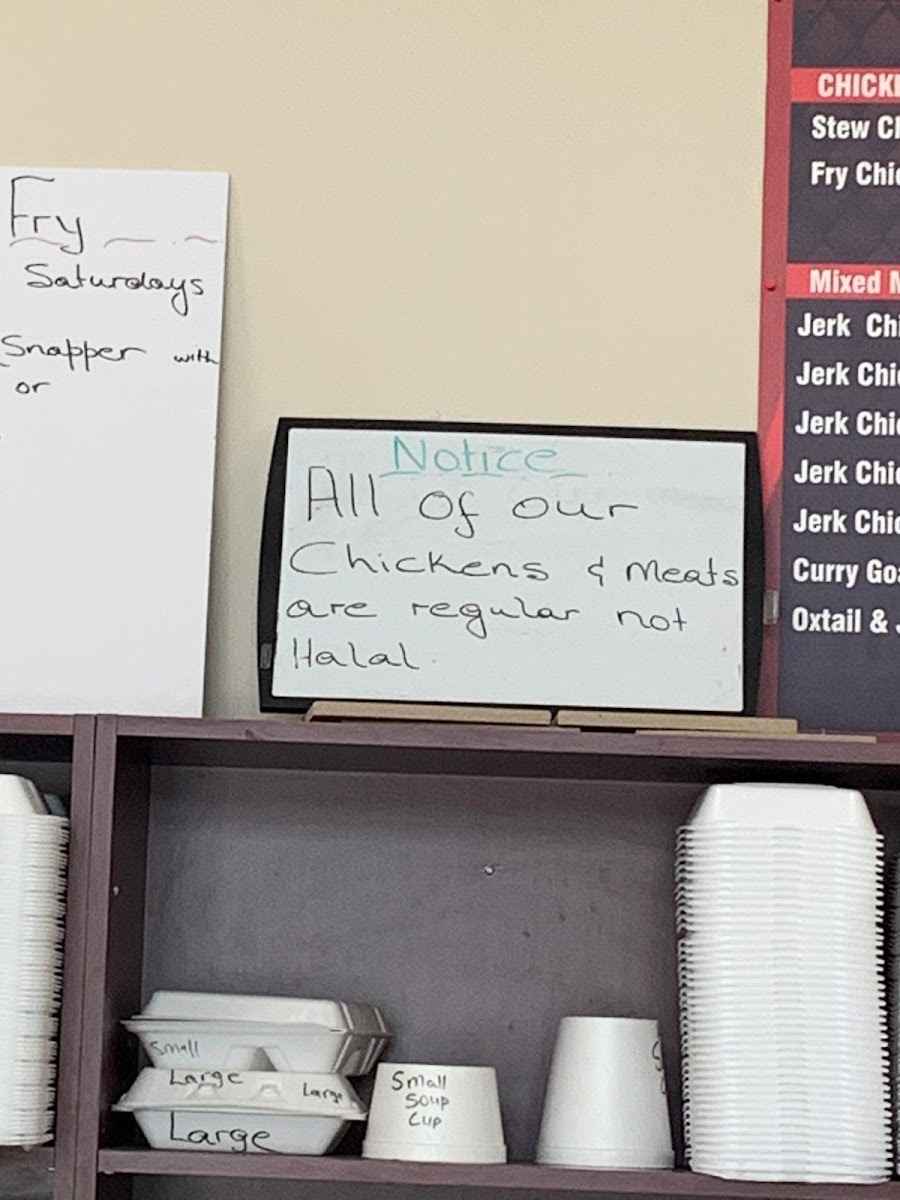 Fry
Saturdays
Snapper with
or
Notice
All of our
Chickens & Meats
are regular not
Halal.
Stew
Fry
Mixed
Jerk
Jerk
Jerk
Jerk
Jerk
Curry
Oxtail &
Small
Large Large
Large
Small
Soup
Cup